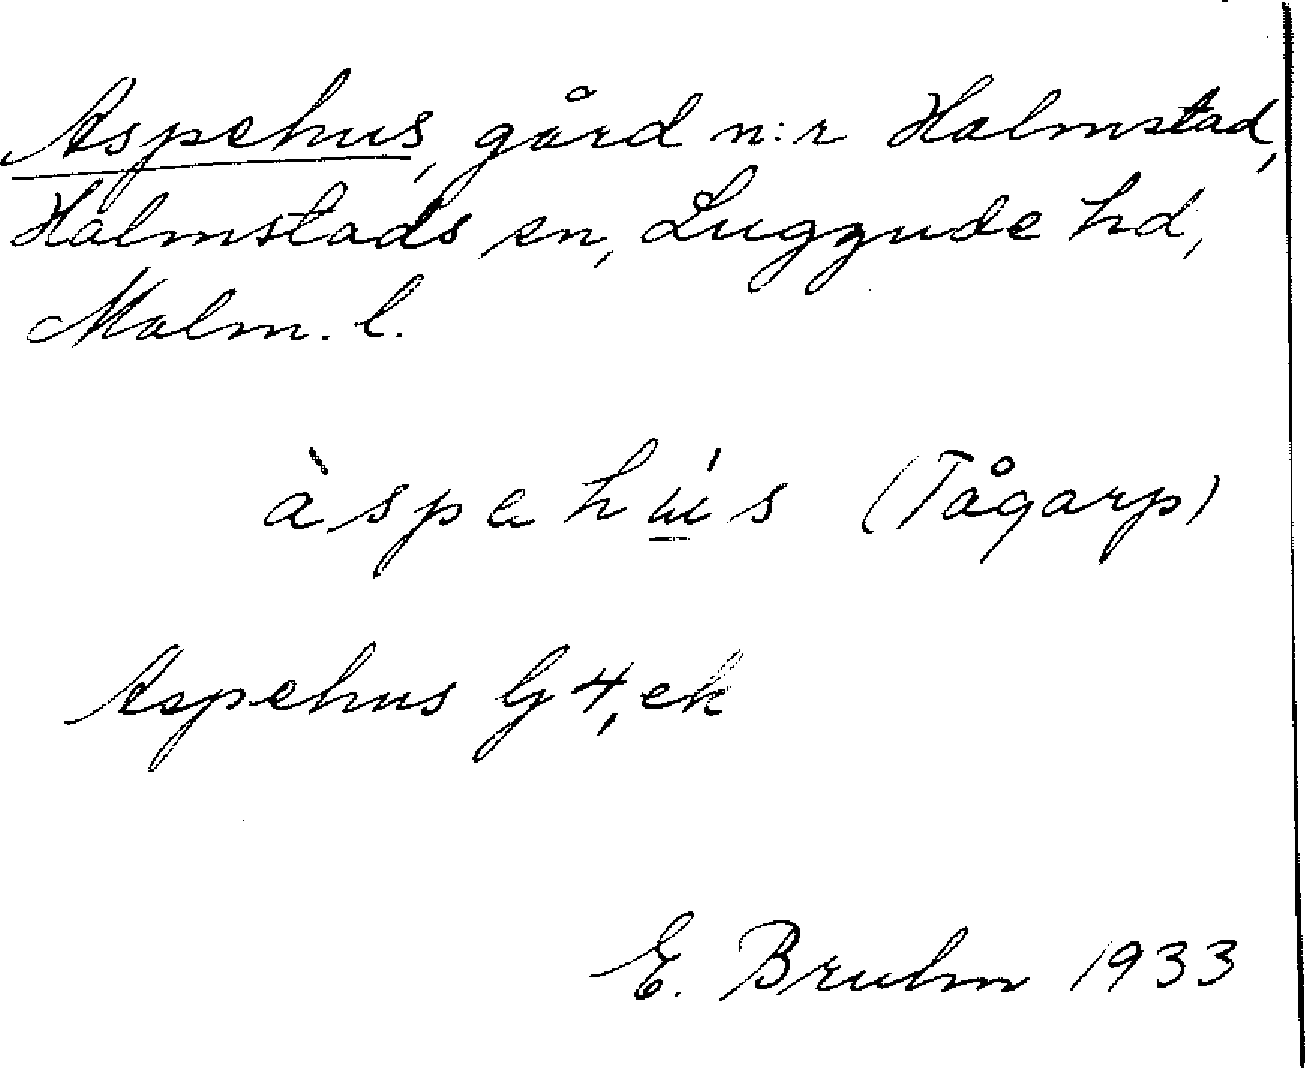 Aspehus, gård n:r Halmstad,
Halmstads sn, Luggude hd,
Malm. l.
àspehús (Tågarp)
Aspehus G 4, ek
E. Bruhn 1933